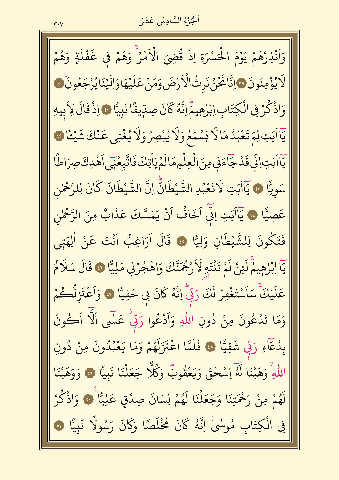 اَلْجُزْءُ السَّادِسُ عَشَرَ ٣٠٧
وَاَنْذِرْهُمْ يَوْمَ الْحَسْرَةِ اِذْ قُضِيَ الْاَمْرُ وَهُمْ فِي غَفْلَةٍ وَهُمْ
لَا يُؤْمِنُونَ ٣٩ اِنَّا نَحْنُ نَرِثُ الْاَرْضَ وَمَنْ عَلَيْهَا وَاِلَيْنَا يُرْجَعُونَ ٤٠
وَاذْكُرْ فِي الْكِتَابِ اِبْرٰهِيمَ اِنَّهُ كَانَ صِدِّيقًا نَبِيًّا ٤١ اِذْ قَالَ لِاَبِيهِ
يَٓا اَبَتِ لِمَ تَعْبُدُ مَا لَا يَسْمَعُ وَلَا يُبْصِرُ وَلَا يُغْنِي عَنْكَ شَيْئًا ٤٢
يَٓا اَبَتِ اِنِّي قَدْ جَٓاءَنِي مِنَ الْعِلْمِ مَا لَمْ يَأْتِكَ فَاتَّبِعْنِٓي اَهْدِكَ صِرَاطًا
سَوِيًّا ٤٣ يَٓا اَبَتِ لَا تَعْبُدِ الشَّيْطَانَ اِنَّ الشَّيْطَانَ كَانَ لِلرَّحْمٰنِ
عَصِيًّا ٤٤ يَٓا اَبَتِ اِنِّٓي اَخَافُ اَنْ يَمَسَّكَ عَذَابٌ مِنَ الرَّحْمٰنِ
فَتَكُونَ لِلشَّيْطَانِ وَلِيًّا ٤٥ قَالَ اَرَاغِبٌ اَنْتَ عَنْ اٰلِهَتِي
يَٓا اِبْرٰهِيمُ لَئِنْ لَمْ تَنْتَهِ لَاَرْجُمَنَّكَ وَاهْجُرْنِي مَلِيًّا ٤٦ قَالَ سَلَامٌ
عَلَيْكَ سَاَسْتَغْفِرُ لَكَ رَبِّي اِنَّهُ كَانَ بِي حَفِيًّا ٤٧ وَاَعْتَزِلُكُمْ
وَمَا تَدْعُونَ مِنْ دُونِ اللّٰهِ وَاَدْعُوا رَبِّي عَسٰٓى اَلَّٓا اَكُونَ
بِدُعَٓاءِ رَبِّي شَقِيًّا ٤٨ فَلَمَّا اعْتَزَلَهُمْ وَمَا يَعْبُدُونَ مِنْ دُونِ
اللّٰهِ وَهَبْنَا لَهُٓ اِسْحٰقَ وَيَعْقُوبَ وَكُلًّا جَعَلْنَا نَبِيًّا ٤٩ وَوَهَبْنَا
لَهُمْ مِنْ رَحْمَتِنَا وَجَعَلْنَا لَهُمْ لِسَانَ صِدْقٍ عَلِيًّا ٥٠ وَاذْكُرْ
فِي الْكِتَابِ مُوسٰٓى اِنَّهُ كَانَ مُخْلَصًا وَكَانَ رَسُولًا نَبِيًّا ٥١